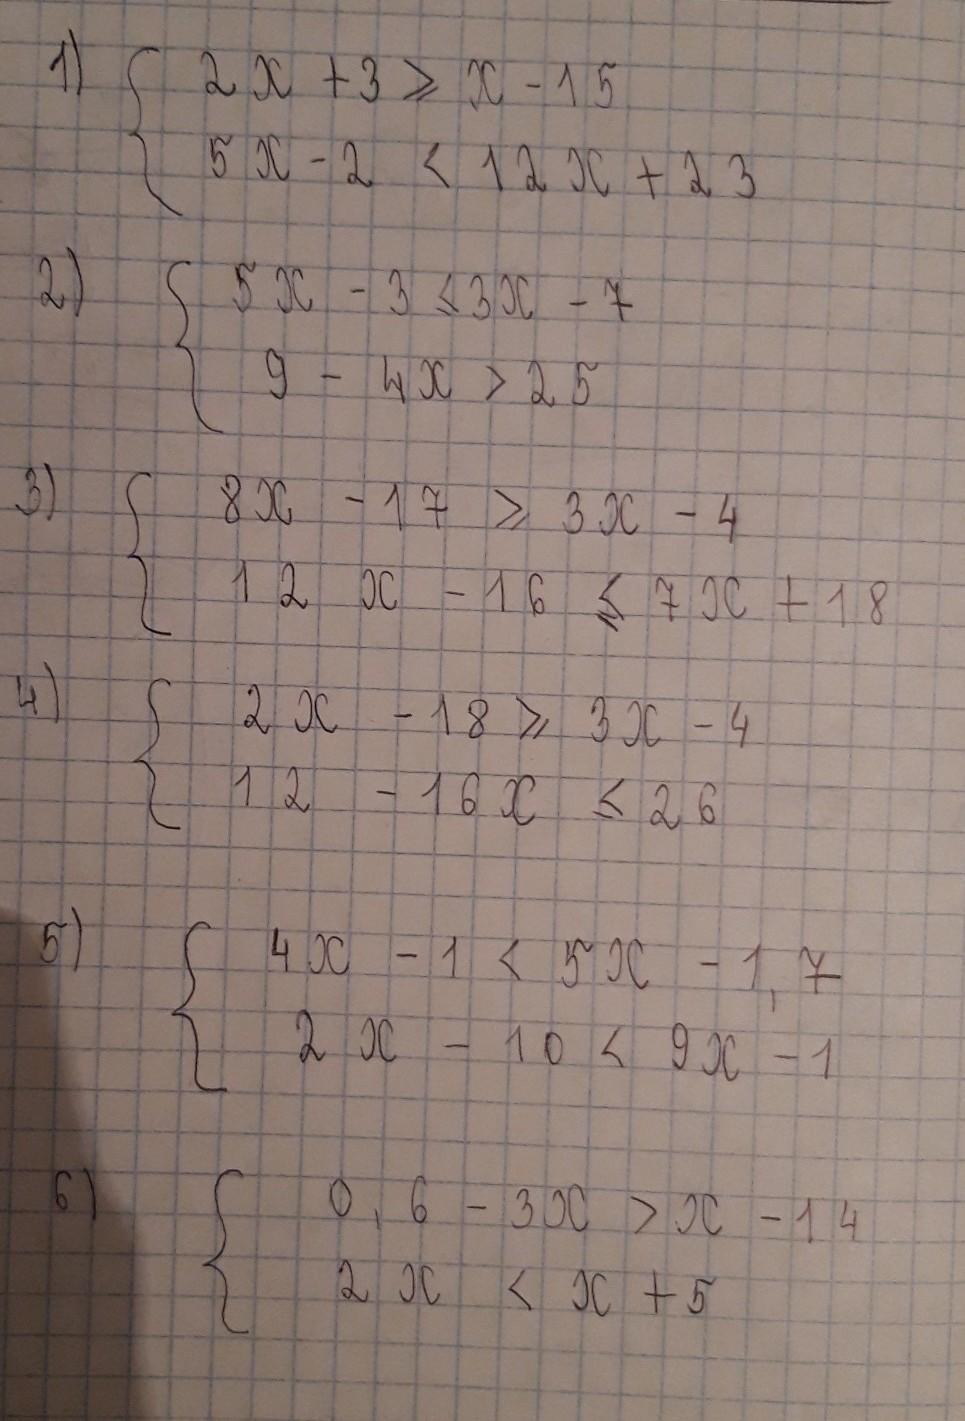 1) { 2x + 3 ⩾ x - 15
5x - 2 < 12x + 23
2) { 5x - 3 < 3x - 7
9 - 4x > 25
3) { 8x - 17 ⩾ 3x - 4
12x - 16 ⩽ 7x + 18
4) { 2x - 18 ⩾ 3x - 4
12 - 16x ⩽ 26
5) { 4x - 1 < 5x - 1,7
2x - 10 < 9x - 1
6) { 0,6 - 3x > x - 14
2x < x + 5